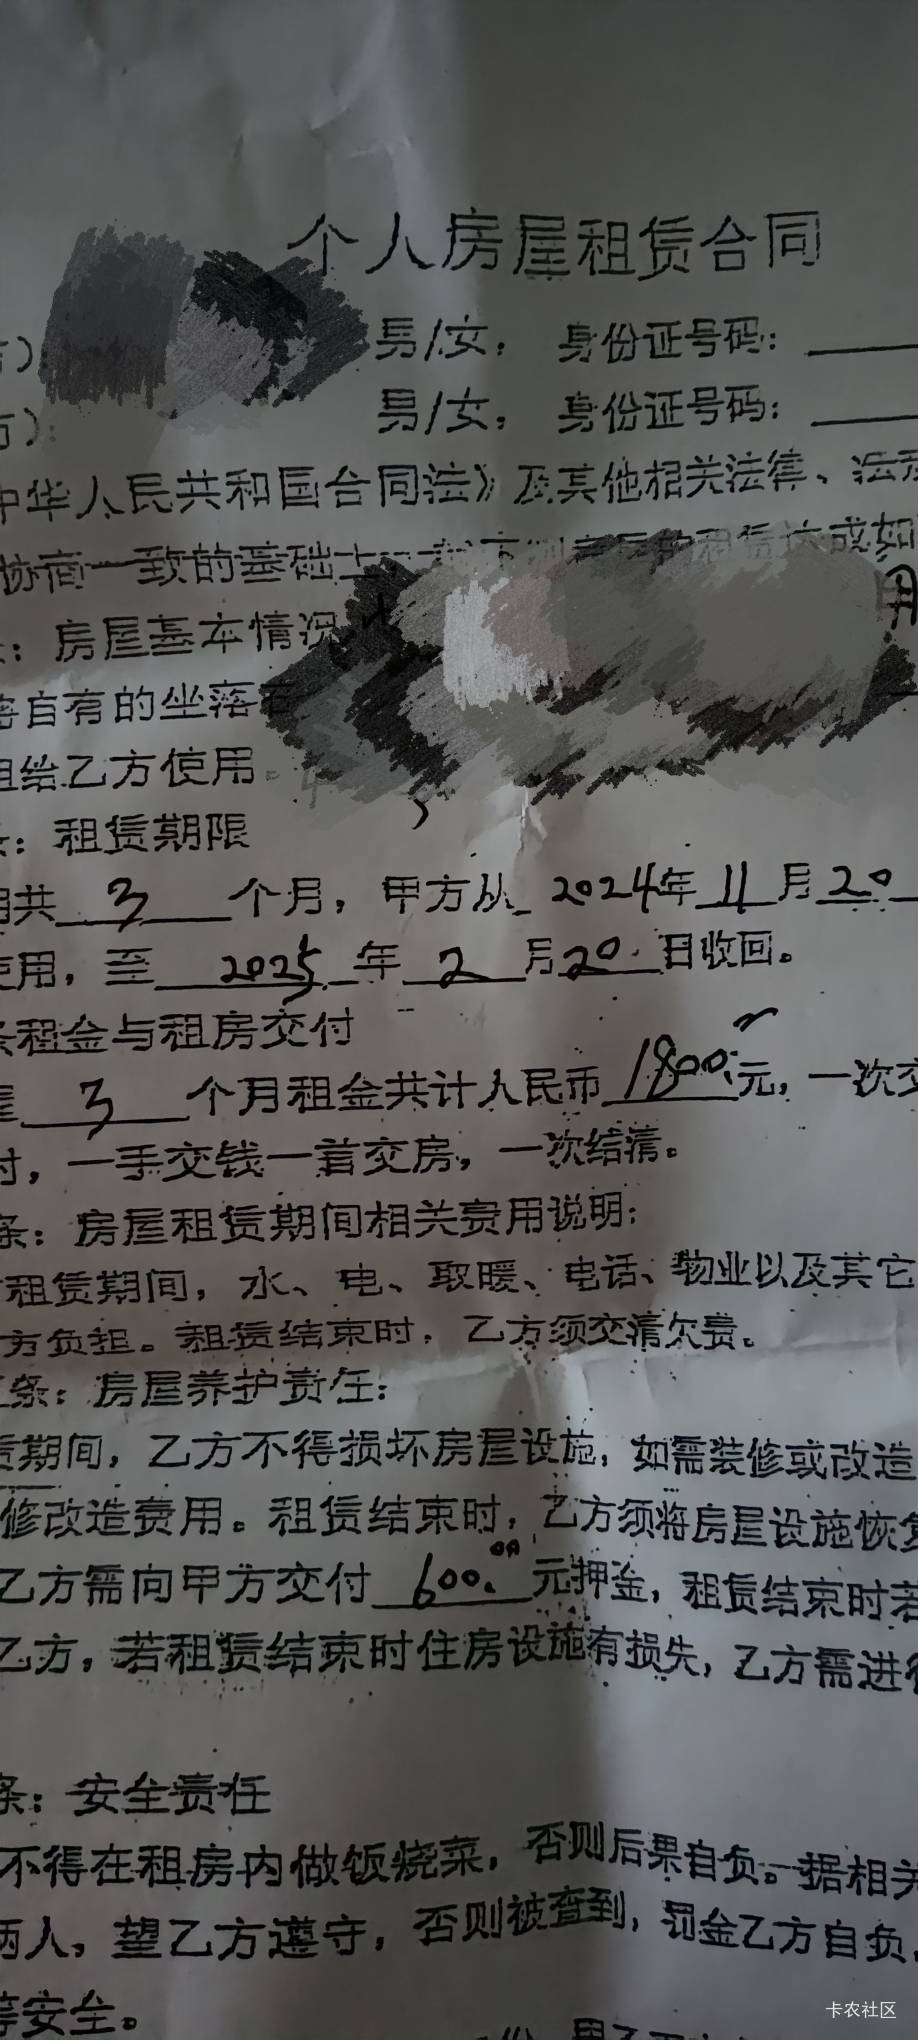 个人房屋租赁合同
男/女， 身份证号码：
男/女， 身份证号码：
中华人民共和国合同法》及其他相关法律、法
协商一致的基础上
：房屋基本情况 用
将自有的坐落
租给乙方使用。
：租赁期限
期共3个月，甲方从2024年11月20
使用，至2025年2月20日收回。
条租金与租房交付
3个月租金共计人民币1800元，一次交
付，一手交钱一首交房，一次结清。
条：房屋租赁期间相关费用说明：
租赁期间，水、电、取暖、电话、物业以及其它
方负担。租赁结束时，乙方须交清欠费。
条：房屋养护责任：
赁期间，乙方不得损坏房屋设施，如需装修或改造
修改造费用。租赁结束时，乙方须将房屋设施恢复
乙方需向甲方交付600.00元押金，租赁结束时若
乙方，若租赁结束时住房设施有损失，乙方需进行
条：安全责任
不得在租房内做饭烧菜，否则后果自负。据相关
两人，望乙方遵守，否则被查到，罚金乙方自负，
等安全。
卡农社区